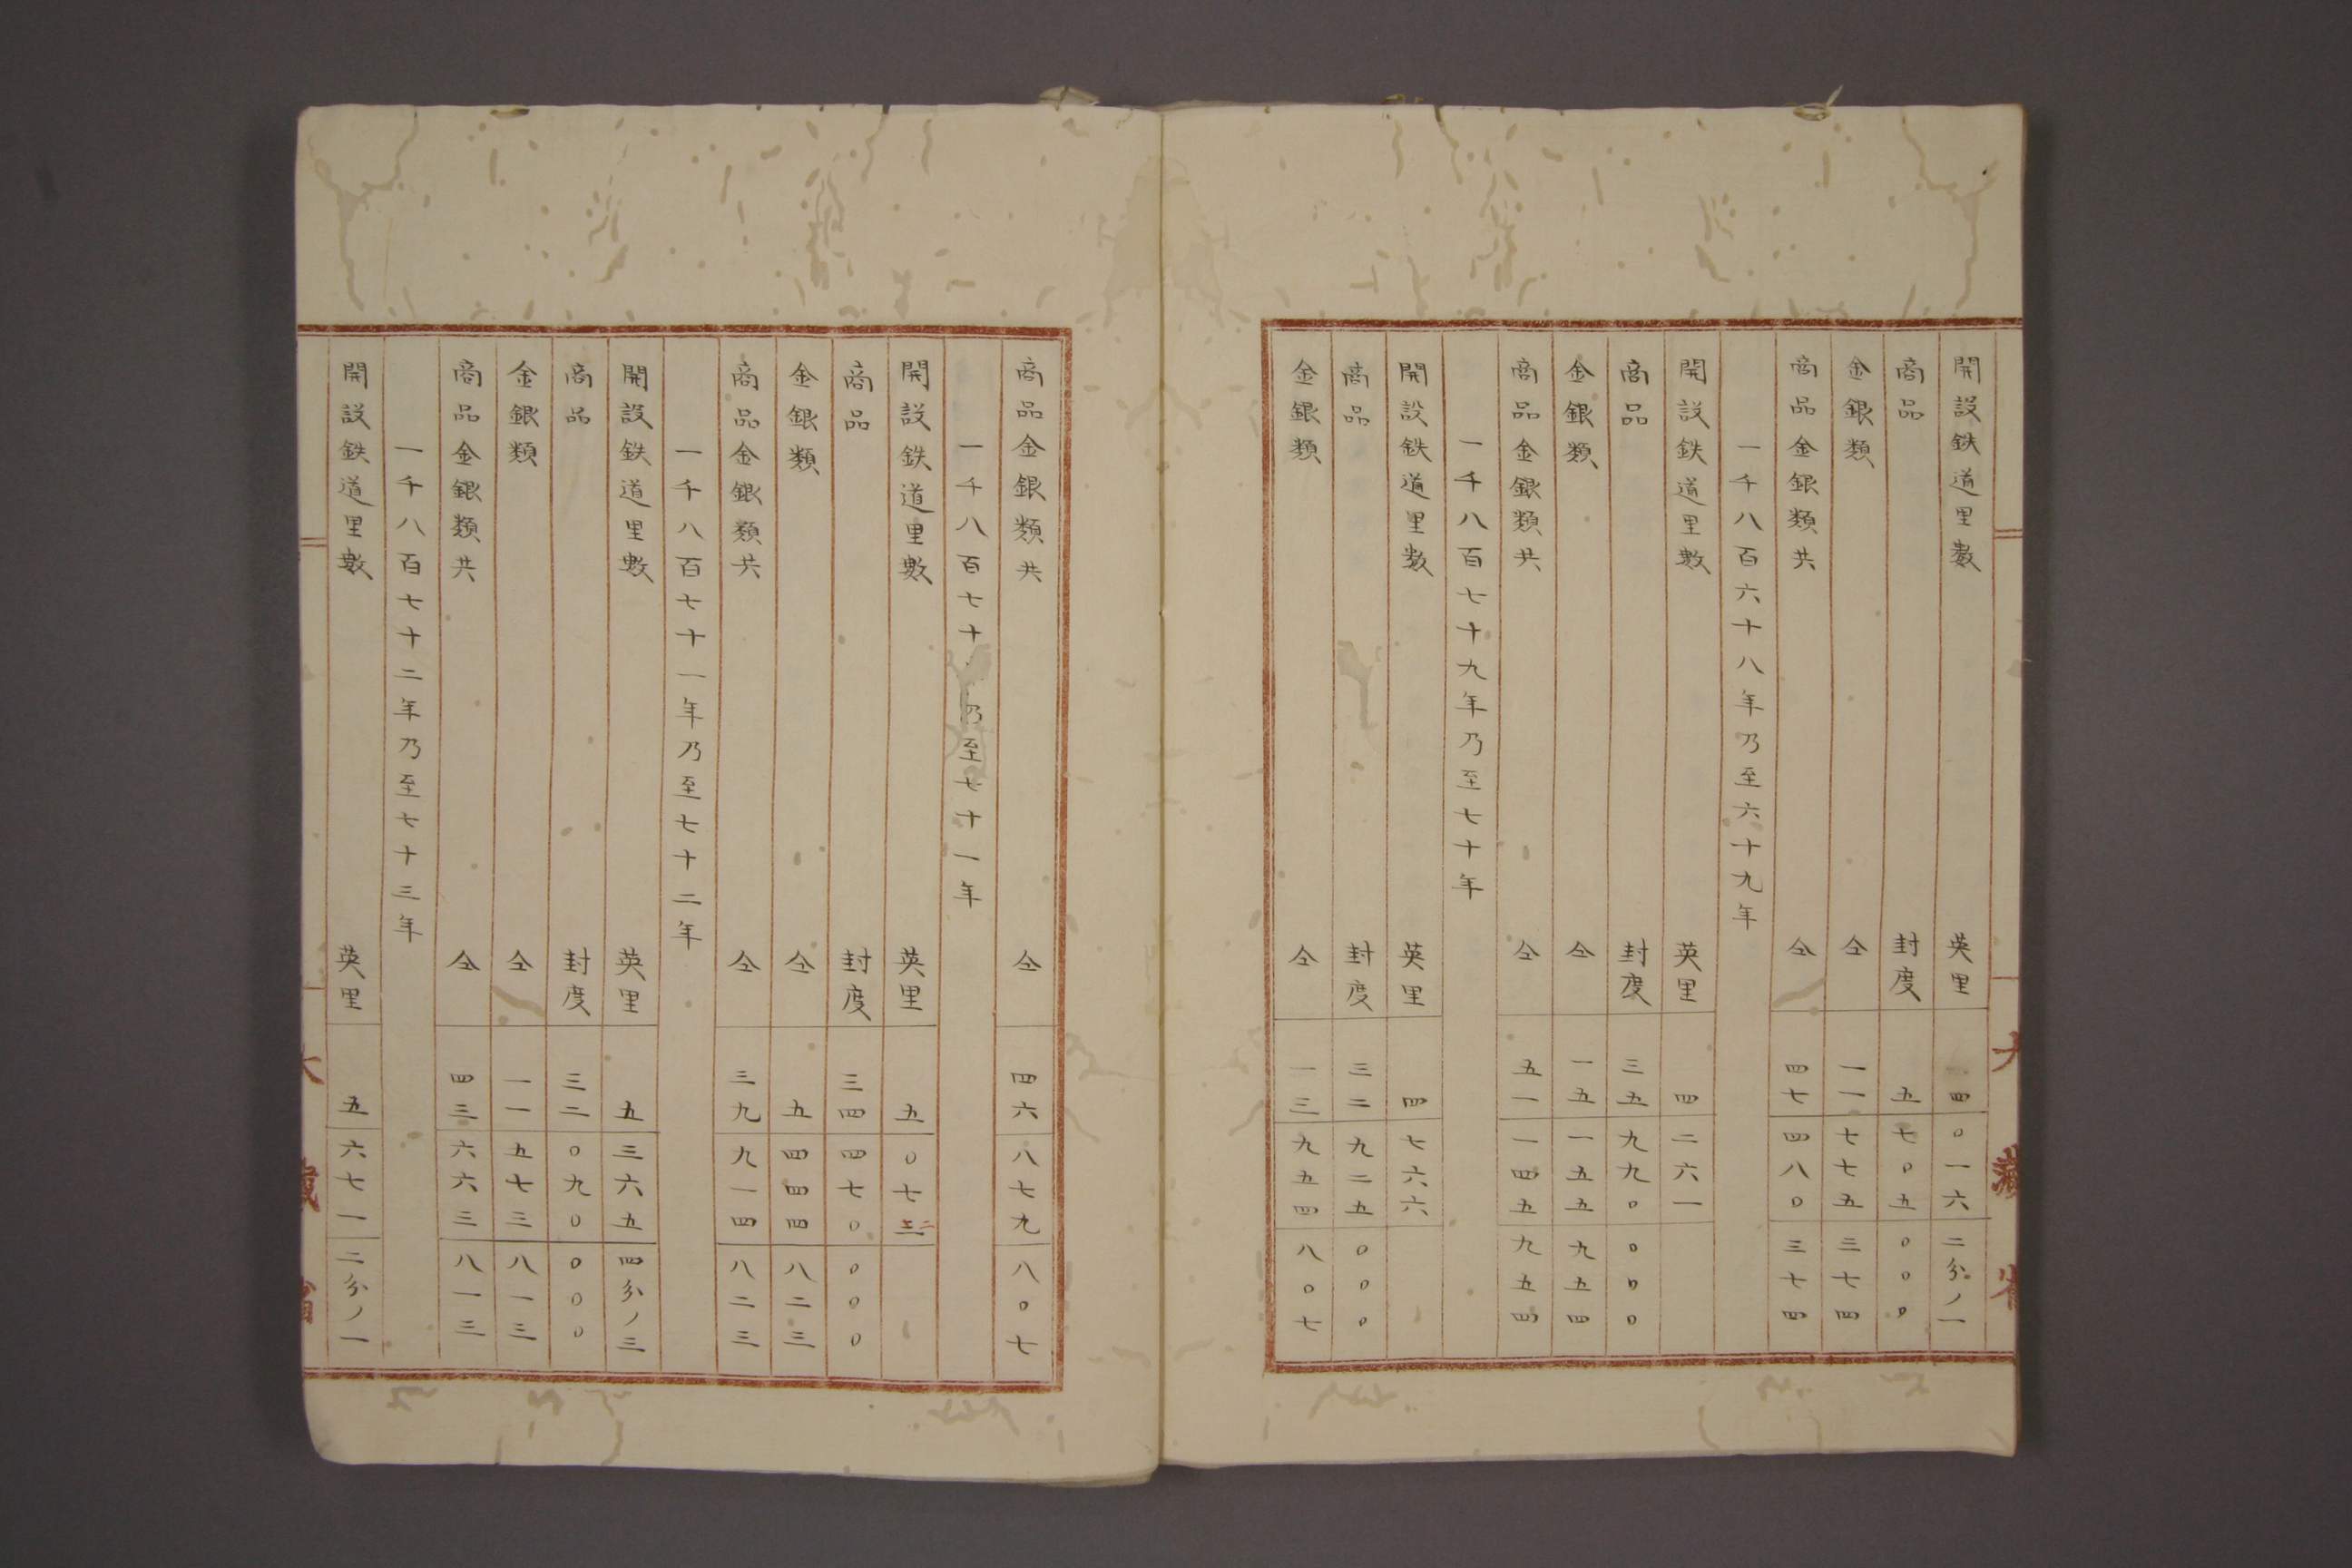 開設鉄道里數 英里 四〇一六二分ノ一
商品 封度 五七〇五〇〇〇
金銀類 仝 一一七七五三七四
商品金銀類共 仝 四七四八〇三七四
一千八百六十八年乃至六十九年
開設鉄道里數 英里 四二六一
商品 封度 三五九九〇〇〇〇
金銀類 仝 一五一五五九五四
商品金銀類共 仝 五一一四五九五四
一千八百七十九年乃至七十年
開設鉄道里数 英里 四七六六
商品 封度 三二九二五〇〇〇
金銀類 仝 一三九五四八〇七
商品金銀類共 仝 四六八七九八〇七
一千八百七十 乃至七十一年
開設鉄道里數 英里 五〇七
商品 封度 三四四七〇〇〇〇
金銀類 仝 五四四四八二三
商品金銀類共 仝 三九九一四八二三
一千八百七十一年乃至七十二年
開設鉄道里數 英里 五三六五四分ノ三
商品 封度 三二〇九〇〇〇〇
金銀類 仝 一一五七三八一三
商品金銀類共 仝 四三六六三八一三
一千八百七十二年乃至七十三年
開設鉄道里數 英里 五六七一二分ノ一